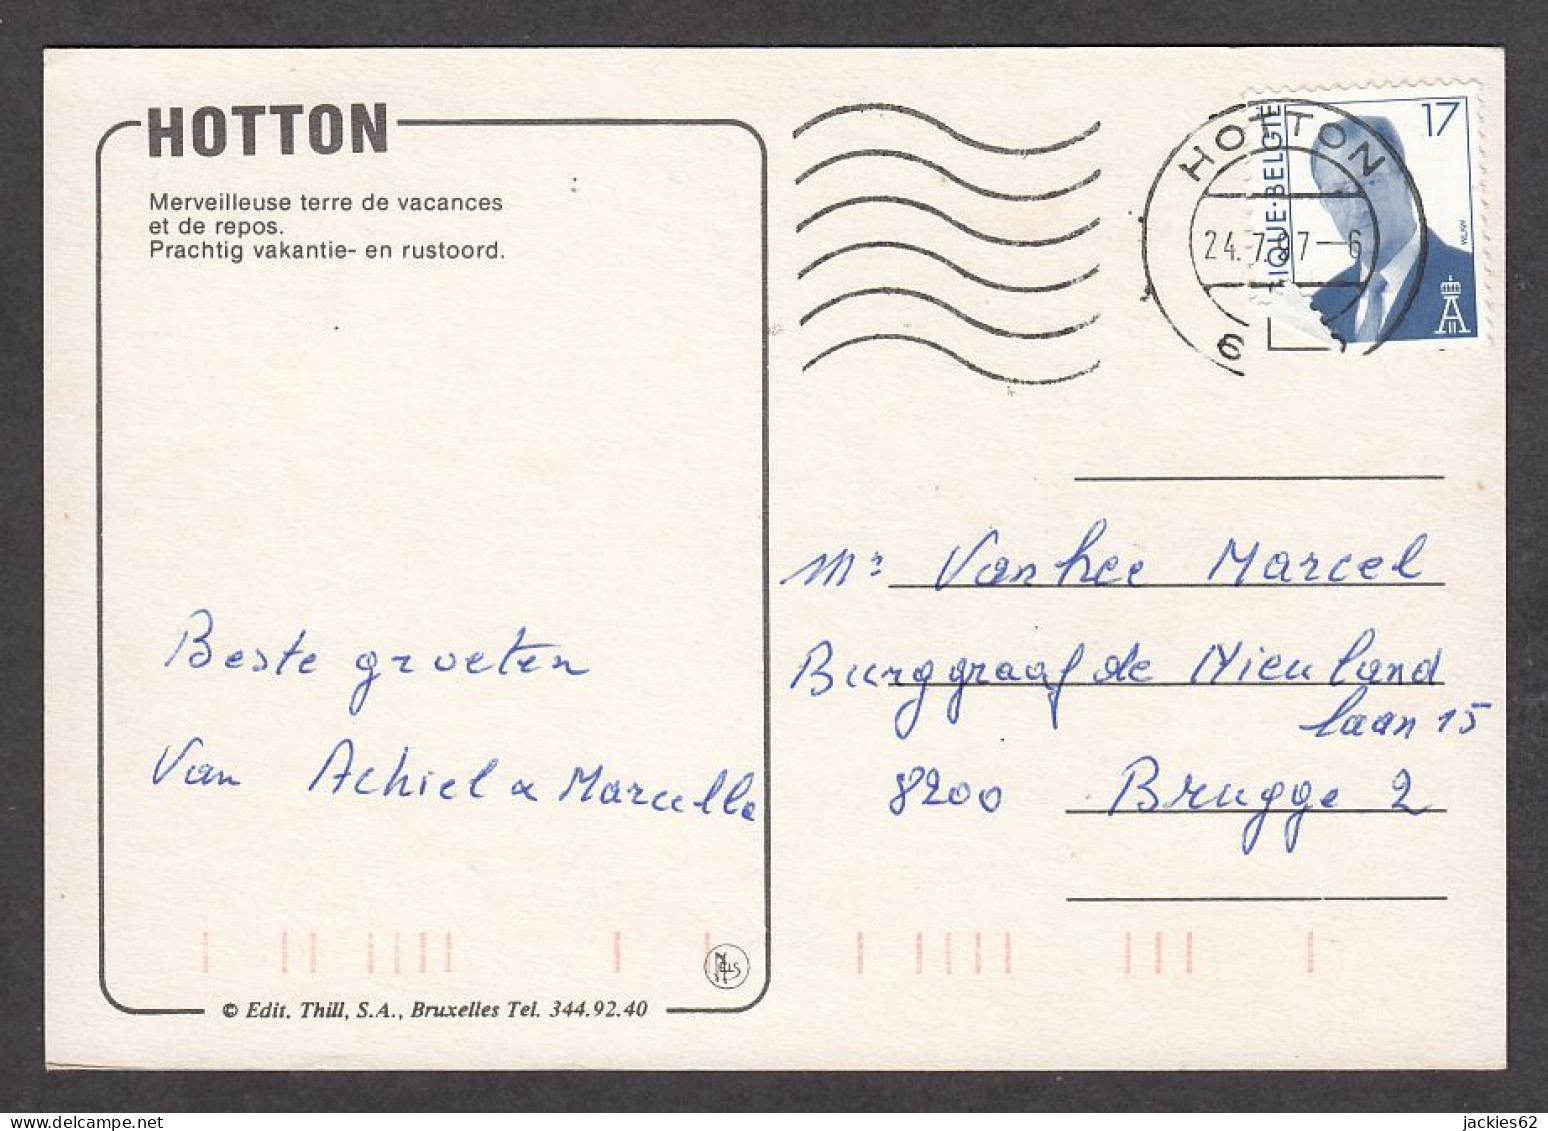 HOTTON
Merveilleuse terre de vacances
et de repos.
Prachtig vakantie- en rustoord.
Beste groeten
Van Achiel & Marcella
© Edit. Thill, S.A., Bruxelles Tel. 344.92.40
HOTTON
24.7.97-6
6
17
IQUE·BELGIE
Mr Vanhee Marcel
Burggraaf de Nieuland
laan 15
8200 Brugge 2
jackies62